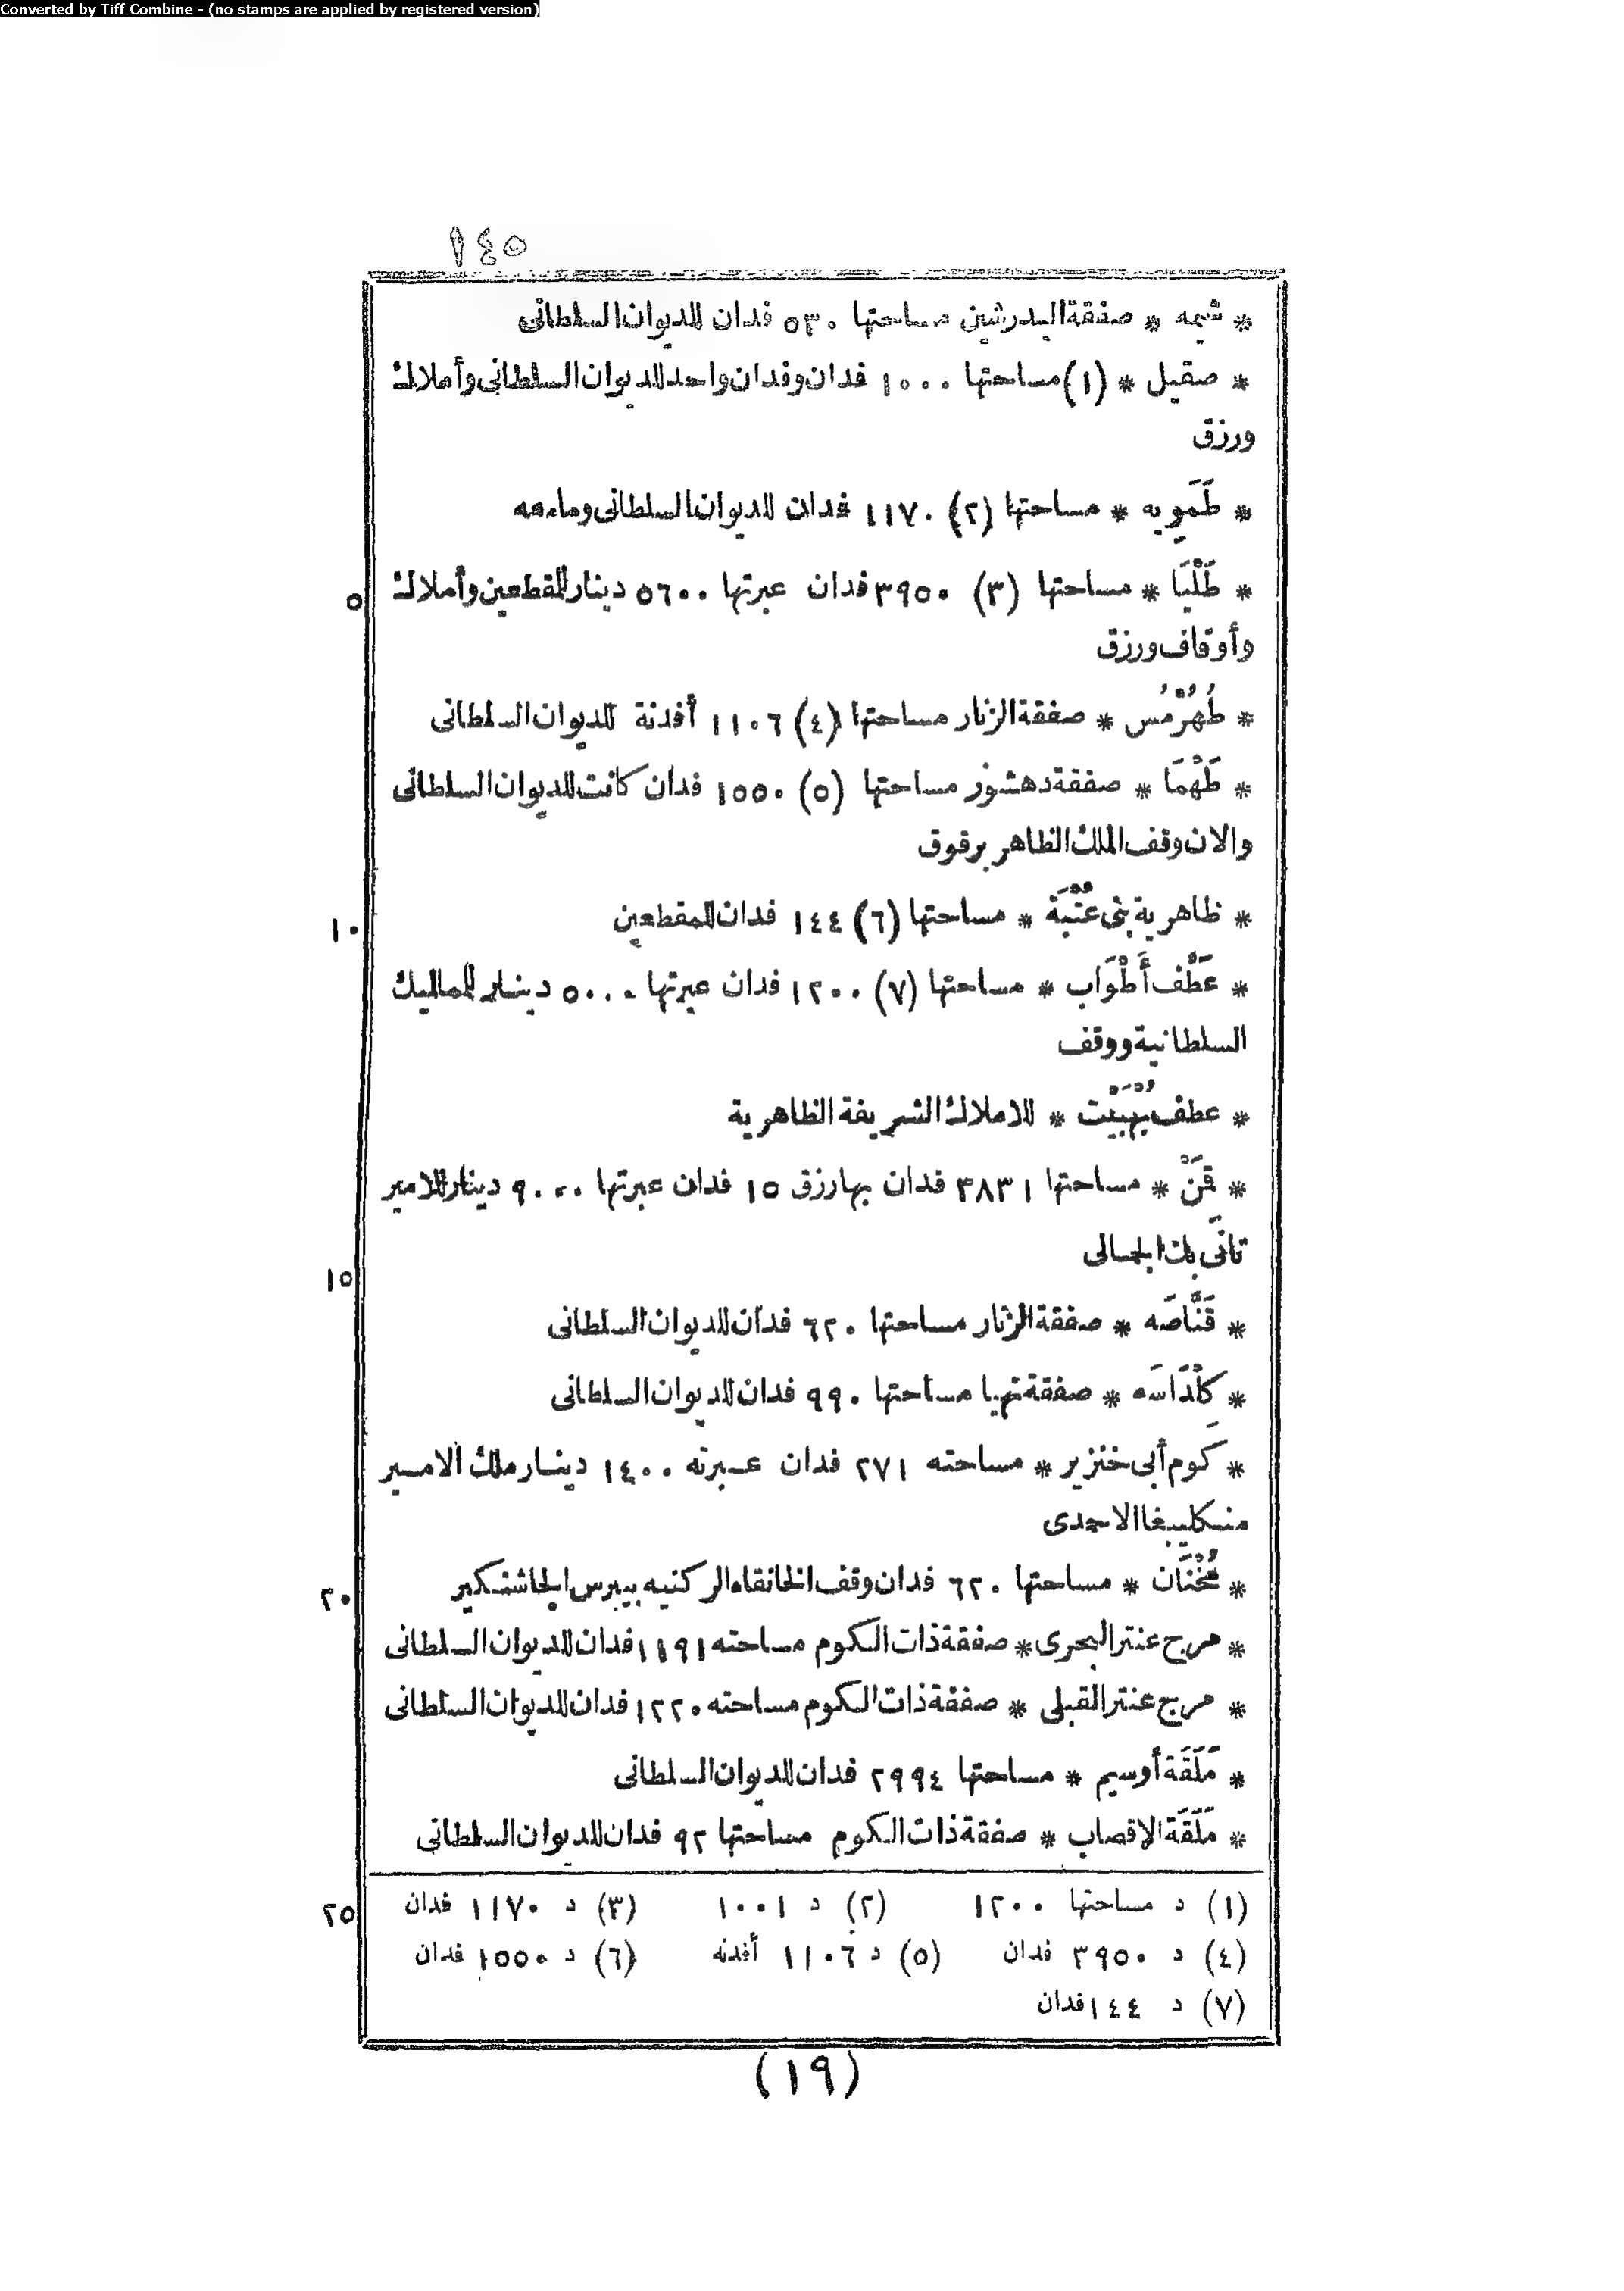 Converted by Tiff Combine - (no stamps are applied by registered version)
١٤٥
* شيمه * صفقة البدرشين مساحتها ٥٣٠ فدان للديوان السلطانى
* صقيل * (١) مساحتها ١٠٠٠ فدان وفدان واحد للديوان السلطانى وأملاك
ورزق
* طَمَويه * مساحتها (٢) ١١٧٠ فدان للديوان السلطانى وما معه
* طَلْيَا * مساحتها (٣) ٣٩٥٠ فدان عبرتها ٥٦٠٠ دينار للمقطعين وأملاك
٥
وأوقاف ورزق
* طُهُرْمُس * صفقة الزنار مساحتها (٤) ١١٠٦ أفدنة للديوان السلطانى
* طَهْمَا * صفقة دهشور مساحتها (٥) ١٥٥٠ فدان كانت للديوان السلطانى
والان وقف الملك الظاهر برقوق
* ظاهرية بنى عُتْبَة * مساحتها (٦) ١٤٤ فدان للمقطعين
١٠
* عَطْف أَطْوَاب * مساحتها (٧) ١٢٠٠ فدان عبرتها ٥٠٠٠ دينار للماليك
السلطانية ووقف
* عطف بُهْبَيْت * للاملاك الشريفة الظاهرية
* قِمَنْ * مساحتها ٣٨٣١ فدان بها رزق ١٥ فدان عبرتها ٩٠٠٠ دينار للامير
تانَى بك الجمالى
١٥
* قَنَّاصَه * صفقة الزنار مساحتها ٦٢٠ فدان للديوان السلطانى
* كَلْدَاسَه * صفقة نهيا مساحتها ٩٩٠ فدان للديوان السلطانى
* كَوم أبى خنزير * مساحته ٢٧١ فدان عبرته ١٤٠٠ دينار ملك الامير
منكليبغا الاحمدى
* مُخْنَان * مساحتها ٦٢٠ فدان وقف الخانقاه الركنيه بيبرس الجاشنكير
٢٠
* مرج عنتر البحرى * صفقة ذات الكوم مساحته ١١٩١ فدان للديوان السلطانى
* مرج عنتر القبلى * صفقة ذات الكوم مساحته ١٢٢٠ فدان للديوان السلطانى
* مَلَقَة أوسيم * مساحتها ٢٩٩٤ فدان للديوان السلطانى
* مَلَقَة الاقصاب * صفقة ذات الكوم مساحتها ٩٢ فدان للديوان السلطانى
(١) د مساحتها ١٢٠٠ (٢) د ١٠٠١ (٣) د ١١٧٠ فدان
٢٥
(٤) د ٣٩٥٠ فدان (٥) د ١١٠٦ أفدنه (٦) د ١٥٥٠ فدان
(٧) د ١٤٤ فدان
(١٩)